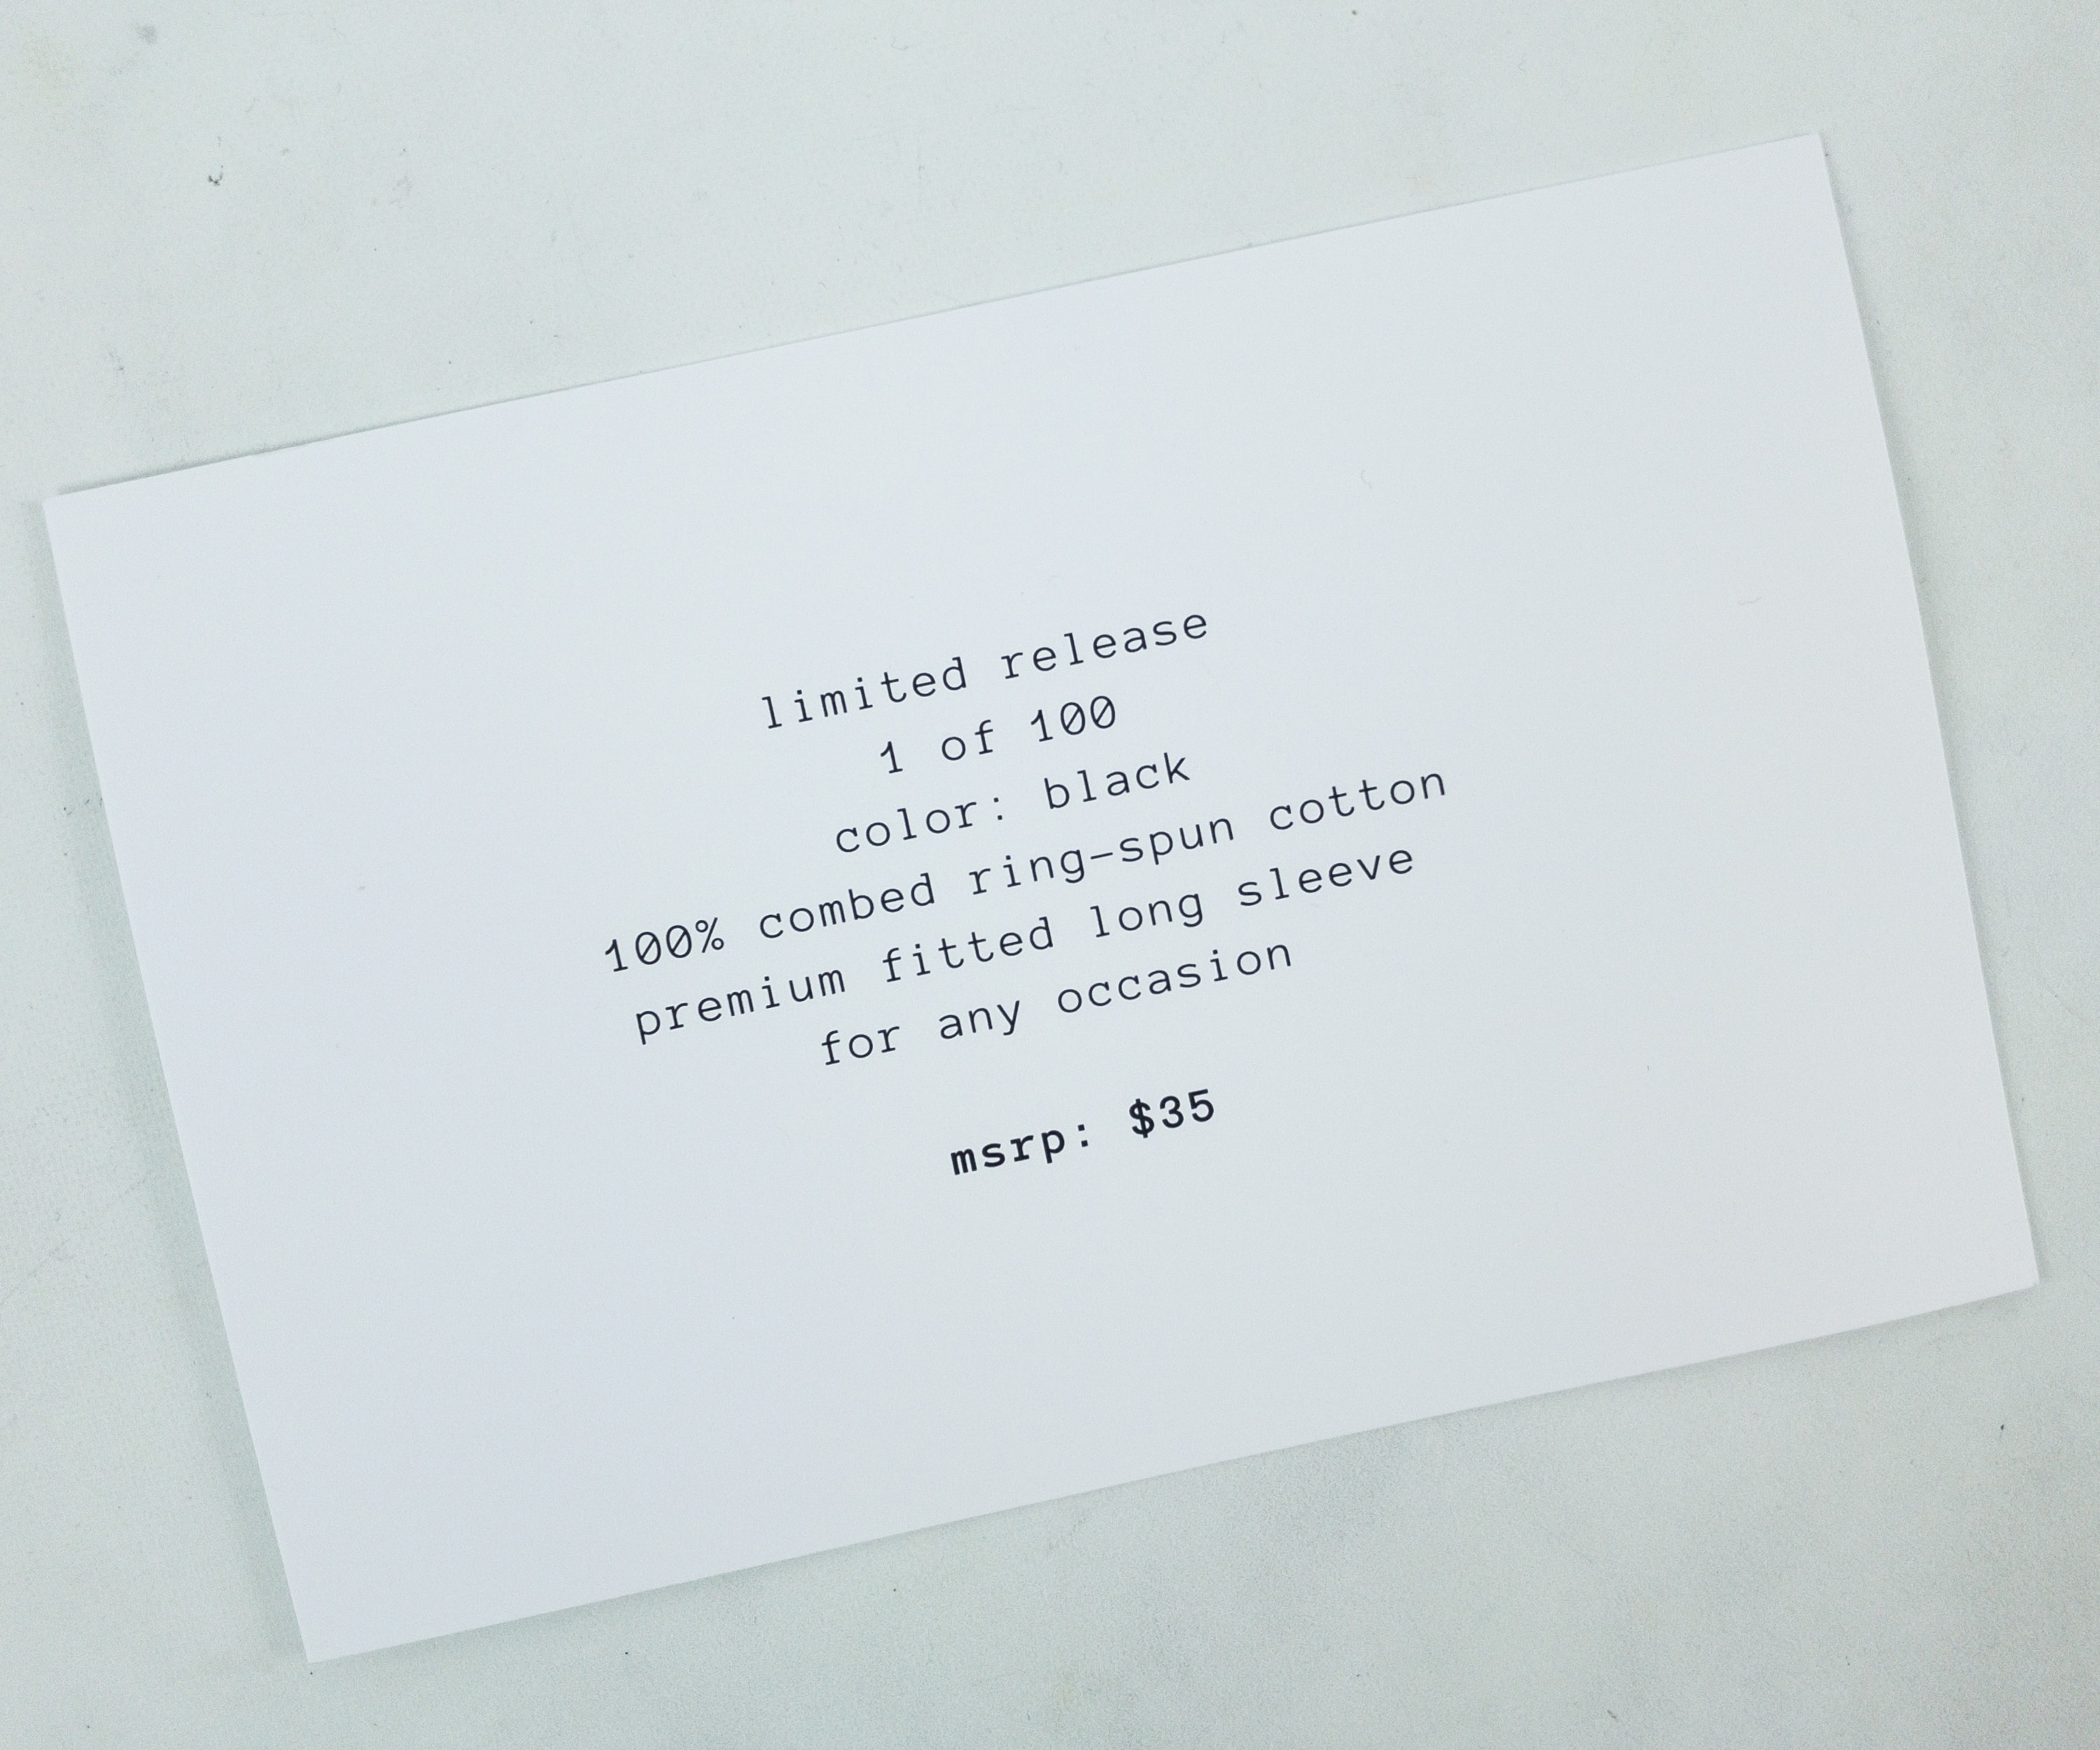 limited release
1 of 100
color: black
100% combed ring-spun cotton
premium fitted long sleeve
for any occasion
msrp: $35